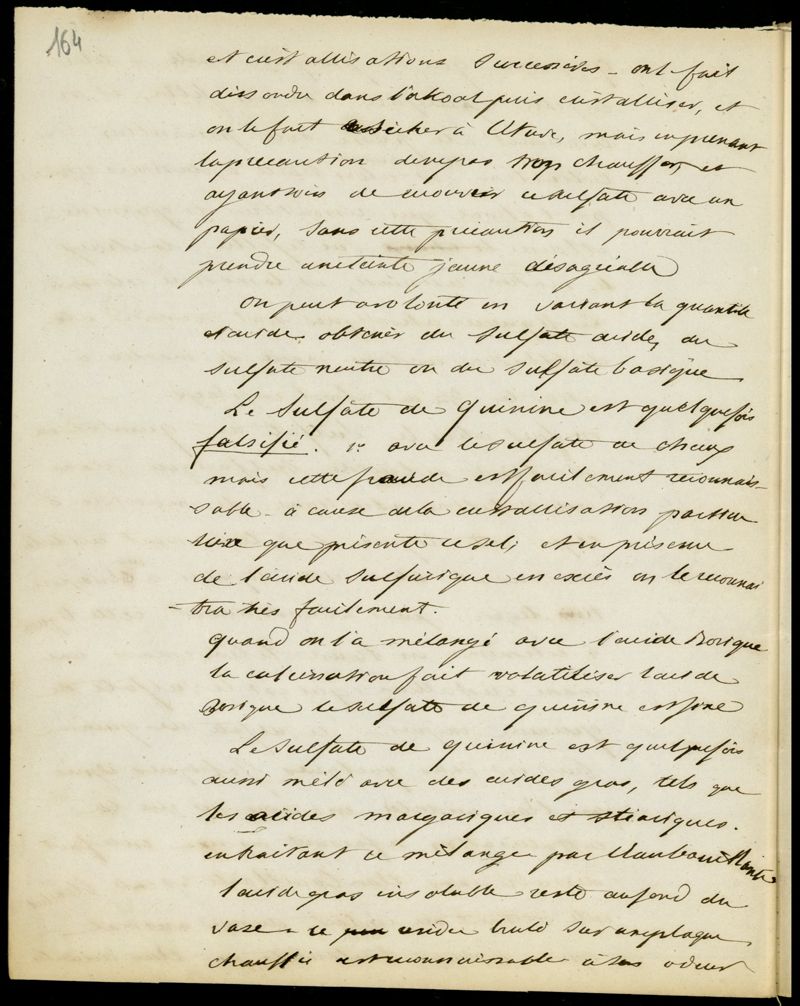 164
et cristallisations successives - on le fait
dissoudre dans l'alcool puis cristalliser, et
on le fait sécher à l'étuve, mais en prenant
la précaution de ne pas trop chauffer, et
ayant soin de couvrir ce sulfate avec un
papier, sans cette précaution il pourrait
prendre une teinte jaune désagréable
On peut à volonté en variant la quantité
d'acide obtenir du sulfate acide, du
sulfate neutre ou du sulfate basique
Le Sulfate de Quinine est quelquefois
falsifié. 1° avec le sulfate de chaux
mais cette fraude est facilement reconnais-
sable - à cause de la cristallisation particu
lière que présente ce sel; et en présence
de l'acide sulfurique en excès on le reconnai
-tra très facilement.
quand on l'a mélangé avec l'acide Borique
la calcination fait volatiliser l'acide
Borique le sulfate de quinine est fixe
Le Sulfate de quinine est quelquefois
aussi mêlé avec des acides gras, tels que
les acides margariques et stéariques.
en traitant ce mélange par l'eau bouillante
l'acide gras insoluble reste au fond du
vase - ce résidu brulé sur une plaque
chauffée est reconnaissable à son odeur